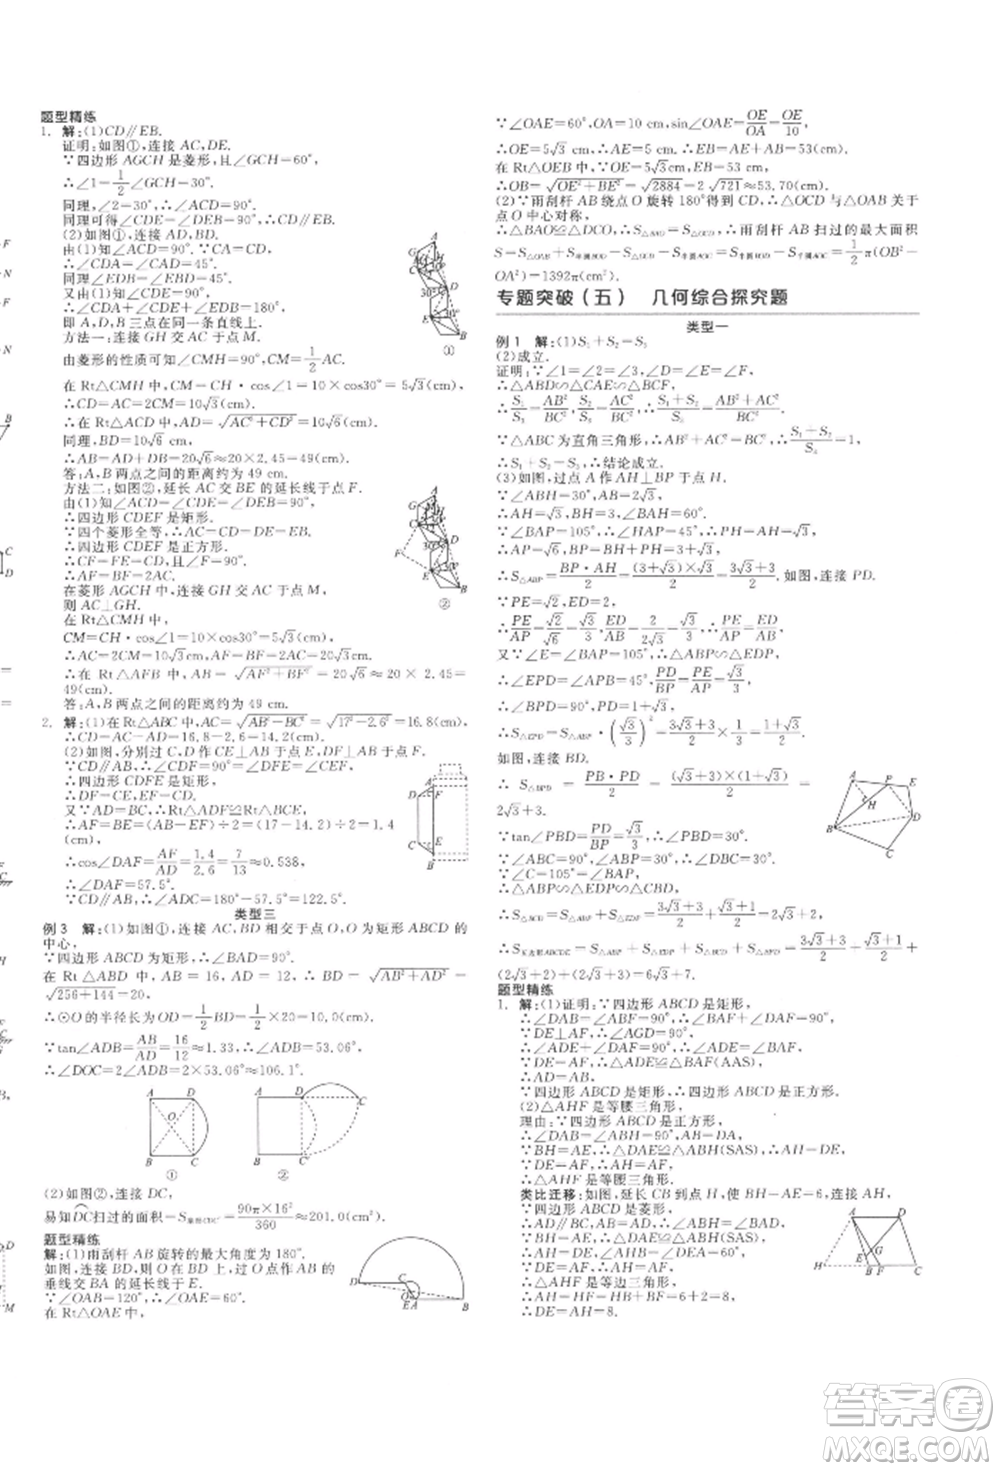 题型精练
1. 解:(1)CD∥EB.
证明:如图①,连接 AC,DE.
∵四边形 AGCH 是菱形,∠GCH=60°,
∴∠1=1/2∠GCH=30°.
同理,∠2=30°,∴∠ACD=90°.
同理可得∠CDE=90°,∴CD∥EB.
(2)如图①,连接 AD,BD.
由(1)知∠ACD=90°.∵CA=CD,
∴∠CDA=∠CAD=45°.
又由(1)知∠CDE=90°,∠BDE=45°,
∴∠CDA+∠CDE+∠BDE=180°,
即 A,D,B 三点在同一条直线上.
方法一:连接 GH 交 AC 于点 M.
由菱形的性质可知∠CMH=90°,CM=1/2AC.
在 Rt△CMH 中,CM=CH·cos∠1=10×cos30°=5√3(cm),
∴CD=AC=2CM=10√3(cm).
在 Rt△ACD 中,AD=√(AC²+CD²)=10√6(cm).
同理,BD=10√6 cm,
∴AB=AD+BD=20√6≈20×2.45=49(cm).
答:A,B 两点之间的距离约为 49 cm.
方法二:如图②,延长 AC 交 BE 的延长线于点 F.
由(1)知∠ACD=90°,∠CDE=90°,CD∥EB,
∴四边形 CDEF 是矩形.
∵四个菱形全等,∴CD=DE,
∴四边形 CDEF 是正方形.
∴CF=FE=CD=AC=BE,
∴AF=BF=2AC.
在菱形 AGCH 中,连接 GH 交 AC 于点 M,
则 AC⊥GH.
在 Rt△CMH 中,
CM=CH·cos∠1=10×cos30°=5√3(cm),
∴AC=2CM=10√3(cm),∴AF=BF=20√3(cm).
∴在 Rt△AFB 中,AB=√(AF²+BF²)=20√6≈20×2.45=
49(cm).
答:A,B 两点之间的距离约为 49 cm.
2. 解:(1)在 Rt△ABC 中,AC=√(AB²-BC²)=√(17²-2.6²)≈16.8(cm),
∴CD=AC-AD=16.8-2.6=14.2(cm).
(2)如图,分别过 C,D 作 CE⊥AB 于点 E,DF⊥AB 于点 F.
∵CD∥AB,∴∠CDF=90°,
∴四边形 CDFE 是矩形,
∴DF=CE,CD=EF.
又∵AD=BC,∴Rt△ADF≌Rt△BCE.
∴AF=BE=(AB-EF)÷2=(17-14.2)÷2=1.4
(cm),
∴cos∠DAF=AF/AD=1.4/2.6=7/13≈0.538,
∴∠DAF=57.5°.
∵CD∥AB,∴∠ADC=180°-57.5°=122.5°.
类型三
例 3 解:(1)如图①,连接 AC,BD 相交于点 O,O 为矩形 ABCD 的
中心,
∵四边形 ABCD 为矩形,∴∠BAD=90°.
在 Rt△ABD 中,∵AB=16,AD=12,∴BD=√(AB²+AD²)=
√(256+144)=20(cm),
∴⊙O 的半径长为 OD=1/2BD=1/2×20=10(cm).
∵tan∠ADB=AB/AD=16/12≈1.33,∴∠ADB=53.06°.
∴∠DOC=2∠ADB=2×53.06°≈106.1°.
①
②
(2)如图②,连接 DC,
易知DC扫过的面积=S扇形CDC′=90π×16²/360≈201.0(cm²).
题型精练
解:(1)雨刮杆 AB 旋转的最大角度为 180°.
如图,连接 OB,则 O 为 BD 中点,过 O 点作 BA 延长线的
垂线交 BA 的延长线于 E.
∵∠OAB=120°,∴∠OAE=60°.
在 Rt△OAE 中,
∵∠OAE=60°,OA=10 cm,sin∠OAE=OE/OA=OE/10,
∴OE=5√3 cm,∴AE=5 cm.∴EB=AE+AB=53(cm).
在 Rt△OEB 中,∵OE=5√3 cm,EB=53 cm,
∴OB=√(OE²+BE²)=√2884=2√721≈53.70(cm).
(2)∵雨刮杆 AB 绕点 O 旋转 180°得到 CD,∴△OCD 与△OAB 关于
点 O 中心对称,
∴△BAO≌△DCO,∴S△BAO=S△DCO,∴雨刮杆 AB 扫过的最大面积
S=S半圆BOD+S△OCD-S半圆AOC-S△BAO=S半圆BOD-S半圆AOC=1/2π(OB²-
OA²)=1392π(cm²).
专题突破(五) 几何综合探究题
类型一
例 1 解:(1)S₁+S₂=S₃
(2)成立.
证明:∵∠1=∠2=∠3,∠D=∠E=∠F,
∴△ABD∽△CAE∽△BCF,
∴S₁/S₃=AB²/BC²,S₂/S₃=AC²/BC²,∴(S₁+S₂)/S₃=(AB²+AC²)/BC².
∵△ABC 为直角三角形,∴AB²+AC²=BC²,∴(S₁+S₂)/S₃=1,
∴S₁+S₂=S₃,∴结论成立.
(3)如图,过点 A 作 AH⊥BP 于点 H.
∵∠ABH=30°,AB=2√3,
∴AH=√3,BH=3,∠BAH=60°.
∵∠BAP=105°,∴∠HAP=45°,∴PH=AH=√3,
∴AP=√6,BP=BH+PH=3+√3,
∴S△ABP=BP·AH/2=(3+√3)×√3/2=(3√3+3)/2.如图,连接 PD.
∵PE=√2,ED=2,
∴PE/AP=√2/√6=√3/3,ED/AB=2/2√3=√3/3,∴PE/AP=ED/AB.
又∵∠E=∠BAP=105°,∴△ABP∽△EDP,
∴∠EPD=∠APB=45°,PD/BP=PE/AP=√3/3,
∴∠BPD=90°,PD=√3+1,
∴S△EPD=S△ABP·(√3/3)²=(3√3+3)/2×1/3=(√3+1)/2.
如图,连接 BD.
∴S△BPD=PB·PD/2=(3+√3)×(√3+1)/2=
2√3+3.
∵tan∠PBD=PD/BP=√3/3,∴∠PBD=30°.
∵∠ABC=90°,∠ABP=30°,∴∠DBC=30°.
∵∠C=105°,∴△ABP∽△EDP∽△CBD,
∴S△BCD=S△ABP+S△EDP=(3√3+3)/2+(√3+1)/2=2√3+2.
∴S五边形ABCDE=S△ABP+S△EPD+S△BPD+S△BCD=(3√3+3)/2+(√3+1)/2+
(2√3+2)+(2√3+3)=6√3+7.
题型精练
1. 解:(1)证明:∵四边形 ABCD 是矩形,
∴∠DAB=∠ABF=90°,∴∠BAF+∠GAD=90°.
∵DE⊥AF,∴∠AGD=90°,
∴∠ADE+∠GAD=90°,∴∠ADE=∠BAF.
∵DE=AF,∴△ADE≌△BAF(AAS).
∴AD=AB.
∵四边形 ABCD 是矩形,∴四边形 ABCD 是正方形.
(2)△AHF 是等腰三角形,
理由:∵四边形 ABCD 是正方形,
∴∠DAB=∠ABH=90°,AB=DA,
∵BH=AE,∴△DAE≌△ABH(SAS),∴AH=DE.
∵DE=AF,∴AH=AF,∴△AHF 是等腰三角形.
类比迁移:如图,延长 CB 到点 H,使 BH=AE=6,连接 AH.
∵四边形 ABCD 是菱形,
∴AD∥BC,AB=AD,
∴∠ABH=∠BAD.
∵BH=AE,∴△DAE≌△ABH(SAS),
∴AH=DE,∠AHB=∠DEA=60°.
∵DE=AF,∴AH=AF,
∴△AHF 是等边三角形,
∴AH=HF=HB+BF=6+2=8,
∴DE=AH=8.
答案圈
MXQE.COM